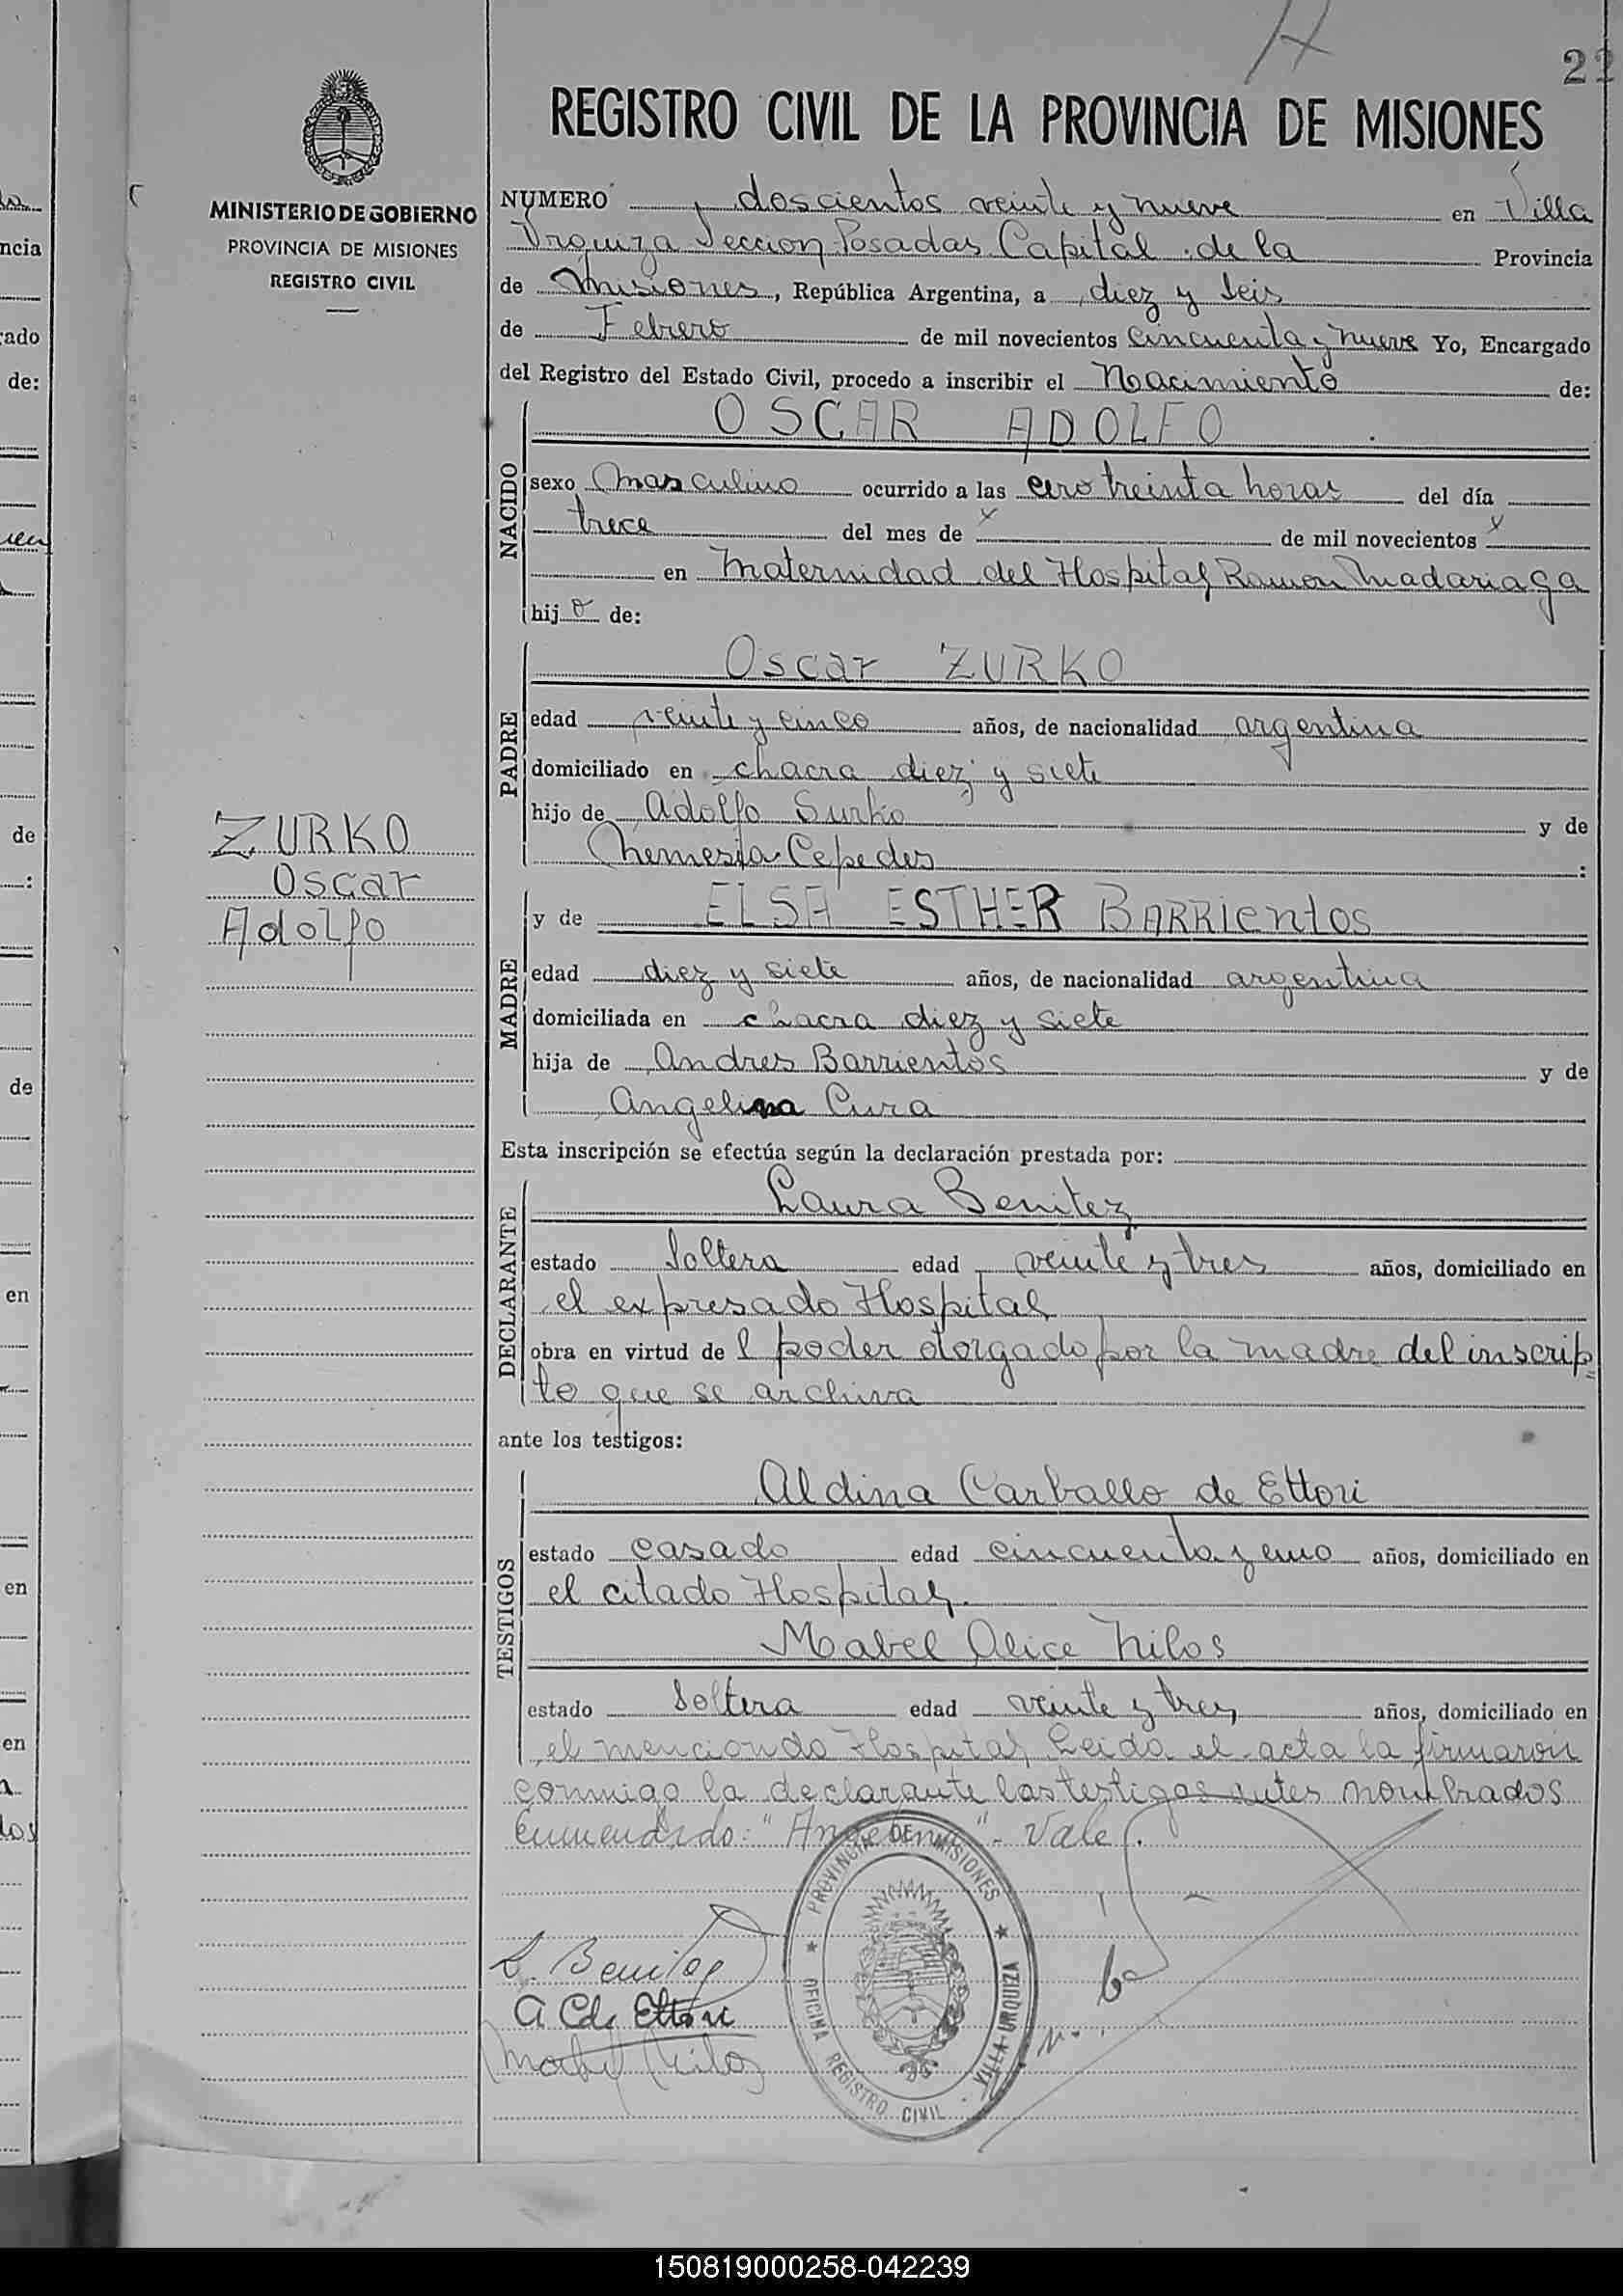 22
REGISTRO CIVIL DE LA PROVINCIA DE MISIONES
MINISTERIO DE GOBIERNO
PROVINCIA DE MISIONES
REGISTRO CIVIL
ZURKO
Oscar
Adolfo
NUMERO doscientos veinte y nueve en Villa
Urquiza Seccion Posadas Capital de la Provincia
de Misiones, República Argentina, a diez y seis
de Febrero de mil novecientos cincuenta y nueve Yo, Encargado
del Registro del Estado Civil, procedo a inscribir el Nacimiento de:
NACIDO
OSCAR ADOLFO
sexo Masculino ocurrido a las cero treinta horas del día
trece del mes de x de mil novecientos x
en Maternidad del Hospital Ramon Madariaga
hijo de:
PADRE
Oscar ZURKO
edad veinte y cinco años, de nacionalidad argentina
domiciliado en chacra diez y siete
hijo de Adolfo Surko y de
Nemesia Cepedes :
MADRE
y de ELSA ESTHER BARRientos
edad diez y siete años, de nacionalidad argentina
domiciliada en chacra diez y siete
hija de Andres Barrientos y de
Angelina Cura
Esta inscripción se efectúa según la declaración prestada por:
DECLARANTE
Laura Benitez
estado Soltera edad veinte y tres años, domiciliado en
el expresado Hospital
obra en virtud del poder otorgado por la madre del inscrip=
to que se archiva
ante los testigos:
TESTIGOS
Aldina Carballo de Ettori
estado casado edad cincuenta y uno años, domiciliado en
el citado Hospital.
Mabel Alice Nilos
estado Soltera edad veinte y tres años, domiciliado en
el menciondo Hospital, Leida el acta la firmaron
conmigo la declarante los testigos antes nombrados
Enmendado: "Angelina"- Vale.
L. Benitez
A C de Ettori
Mabel Nilos
PROVINCIA DE MISIONES
OFICINA REGISTRO CIVIL
VILLA URQUIZA
150819000258-042239